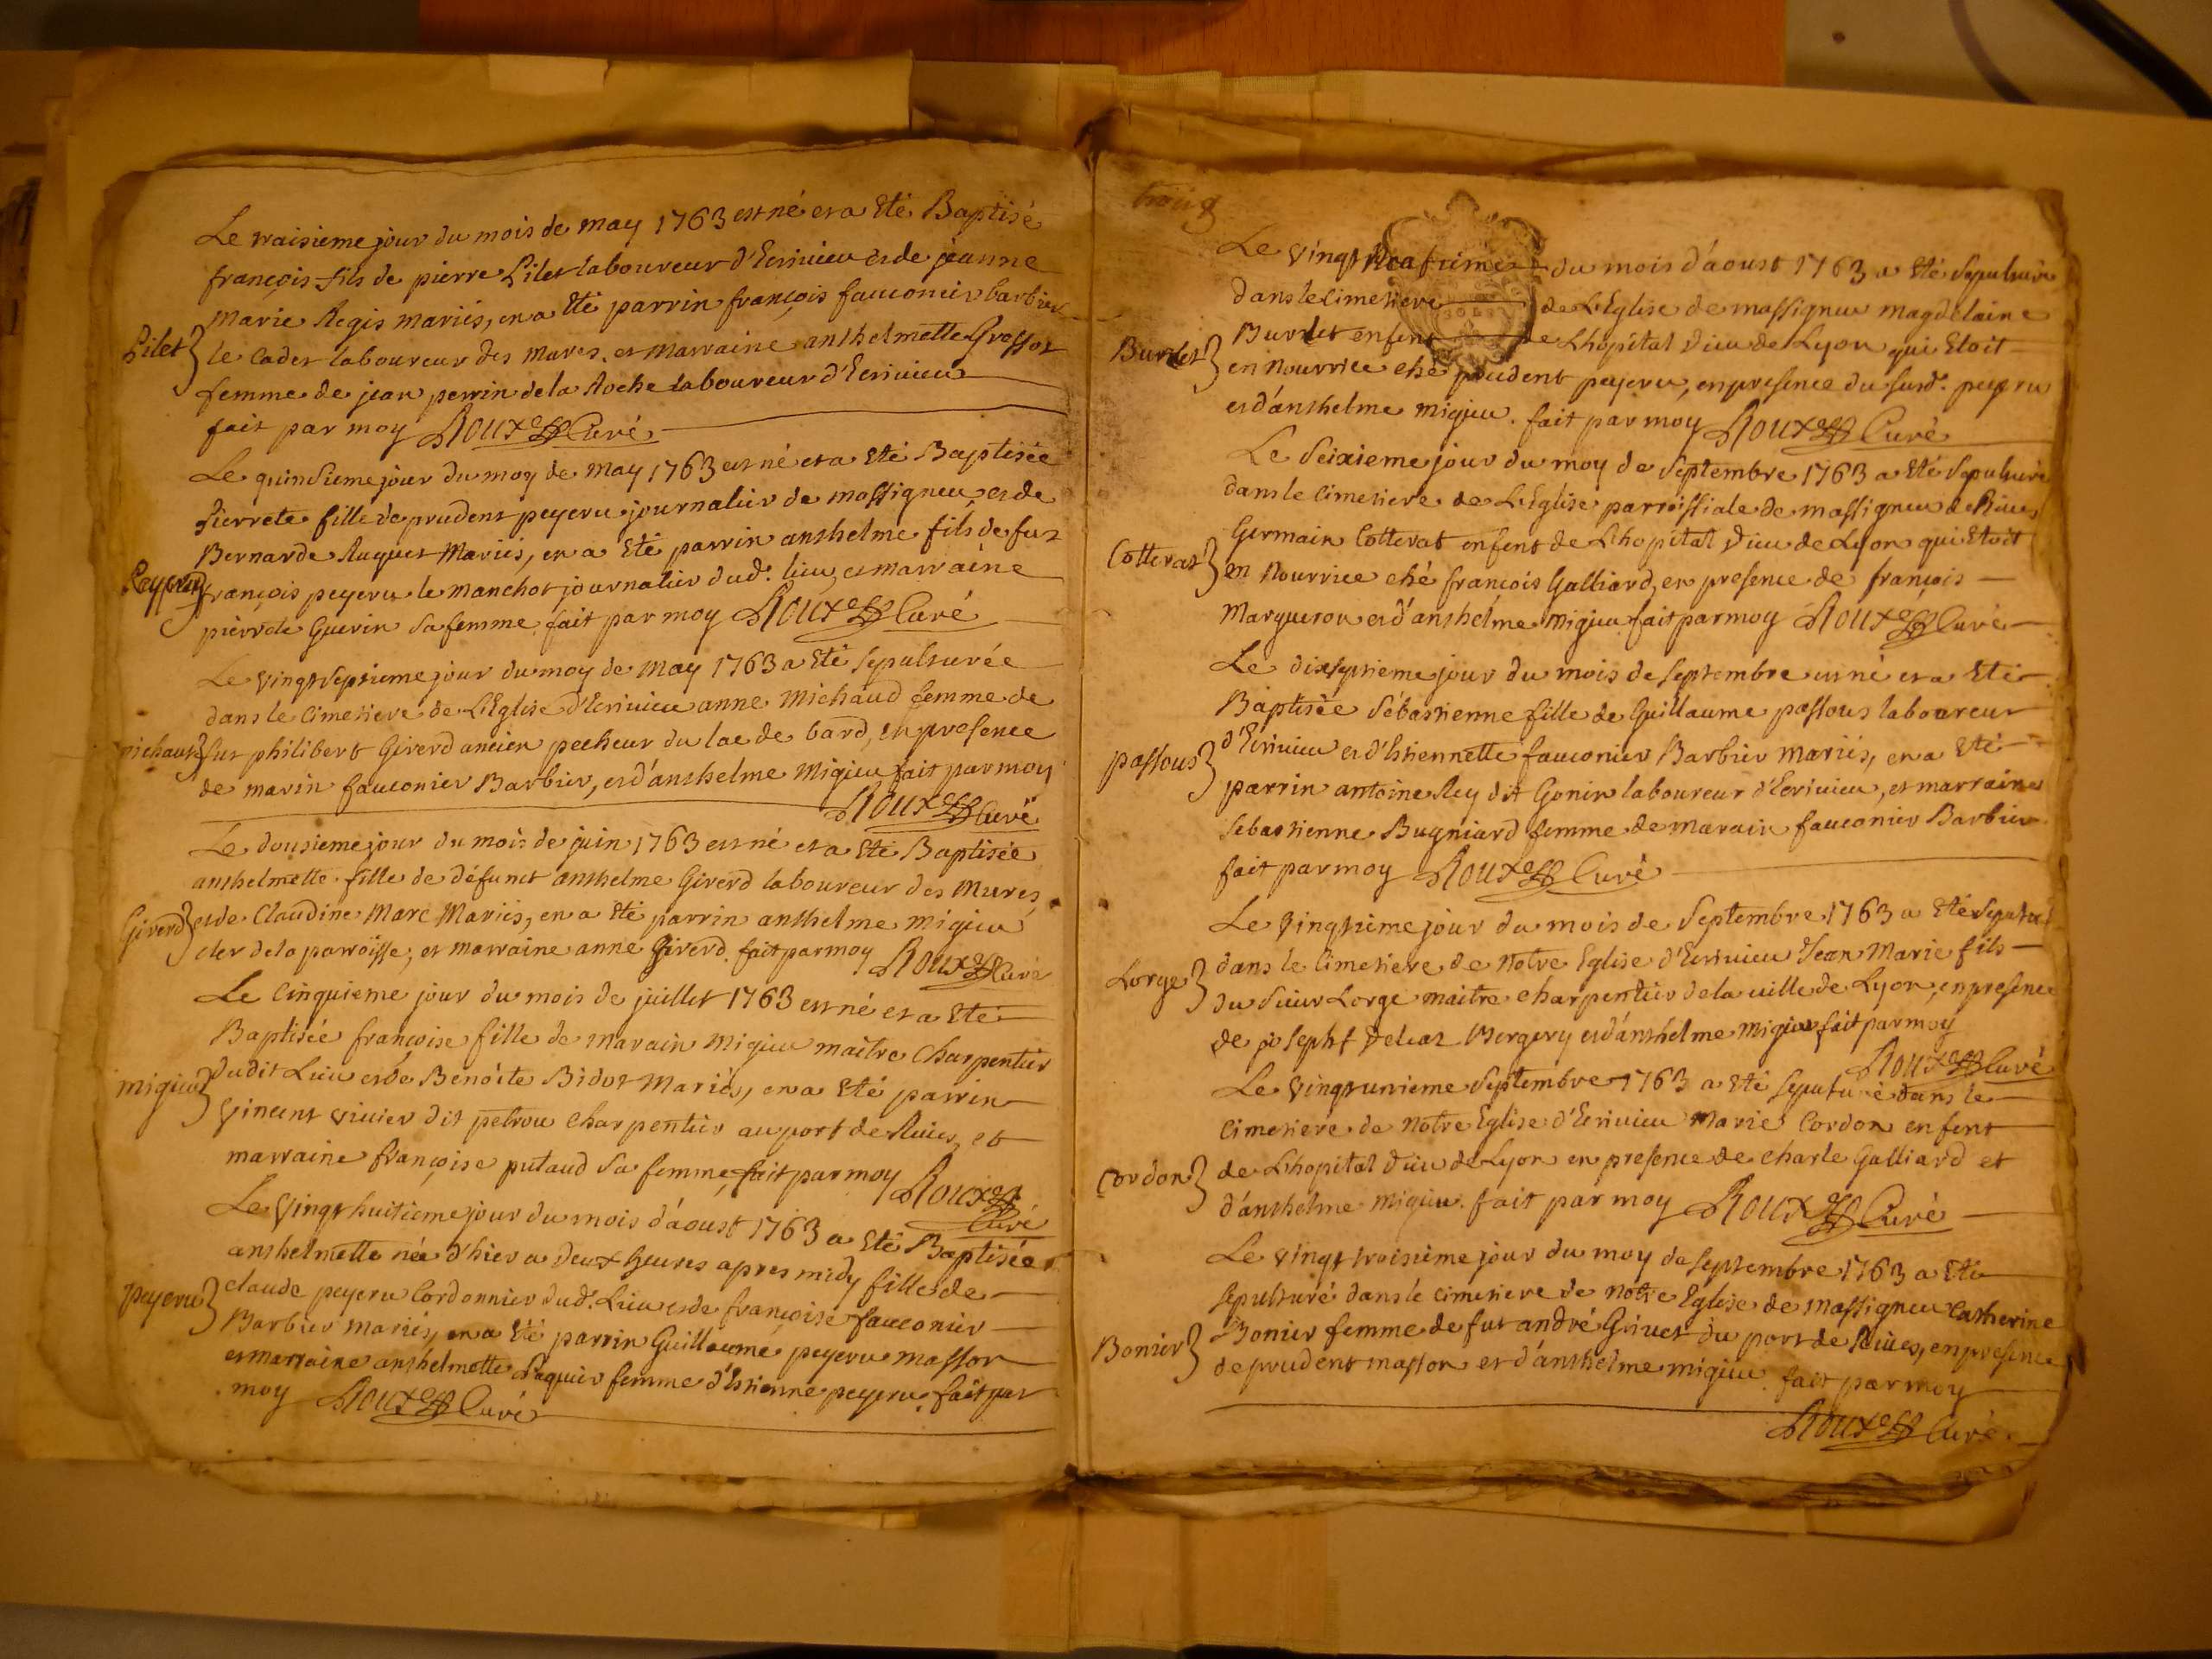 Le traisieme jour du mois de may 1763 est né et a Eté Baptisé
françois fils de pierre Pilet laboureur d'Ecrivieu et de jeanne
marie Regis mariés, en a Eté parrin françois fauconier barbier
Pilet} le Cadet laboureur des mares, et marraine anthelmette Grossot
femme de jean perrin de la Roche laboureur d'Ecrivieu
fait par moy Roux Curé
Le quinsieme jour du moy de may 1763 est né et a Eté Baptisée
Pierrete fille de prudent peyeru journalier de massigneu, et de
Bernarde Ruguet Mariés, en a Eté parrin anthelme fils de fut
Peyeru} françois peyeru le manchot journalier dud. lieu, et marraine
pierrete Guerin sa femme. fait par moy Roux Curé
Le vingt septieme jour du moy de may 1763 a Eté sepulturée
dans le Cimetiere de L'Eglise d'Ecrivieu anne Michaud femme de
michaud} fut philibert Girerd ancien pecheur du lac de bard, en presence
de marin fauconier Barbier, et d'anthelme Migieu fait par moy
Roux Curé
Le dousieme jour du mois de juin 1763 est né et a Eté Baptisée
anthelmette fille de défunct anthelme Girerd laboureur des mures
Girerd} et de Claudine Marc Mariés, en a Eté parrin anthelme migieu
cler de la parroisse, et marraine anne Girerd. fait par moy Roux Curé
Le Cinquieme jour du mois de juillet 1763 est né et a Eté
Baptisée françoise fille de marain migieu maitre Charpentier
migieu} dudit Lieu et de Benoite Bidot Mariés, en a Eté parrin
Vincent vivier dit petrou Charpentier au port de Rives, et
marraine françoise putaud sa femme, fait par moy Roux
Curé
Le Vingt huitieme jour du mois d'aoust 1763 a Eté Baptisée
anthelmette née d'hier a deux heures apres midy fille de
peyeru} claude peyeru Cordonnier dud. Lieu et de françoise fauconier
Barbier mariés, en a Eté parrin Guillaume peyeru masson
et marraine anthelmette Paquier femme d'Estienne peyeru. fait par
moy Roux Curé
Le vingt du mois d'aoust 1763 a Eté sepulturé
dans le Cimetiere de L'Eglise de massigneu magdelaine
Burdet} Burdet enfent de Lhopital Dieu de Lyon qui Etoit
en Nourrice ché prudent peyeru, en presence du susd. peyeru
et d'anthelme migieu. fait par moy Roux Curé
Le Seixieme jour du moy de Septembre 1763 a Eté Sepulturé
dans le Cimetiere de L'Eglise parroissiale de massigneu de Rives
Germain Cotterat enfent de Lhopital Dieu de Lyon qui Etoit
Cotterat} en Nourrice ché françois Galliard, en presence de françois
Margueron et d'anthelme Migieu fait par moy Roux Curé
Le dixseptieme jour du mois de septembre est né et a Eté
Baptisée Sébastienne fille de Guillaume passous laboureur
passous} d'Ecrivieu et d'Estiennette fauconier Barbier mariés, en a Eté
parrin antoine Rey dit Gonin laboureur d'Ecrivieu, et marraine
Sebastienne Bugniard femme de marain fauconier Barbier
fait par moy Roux Curé
Le vingtieme jour du mois de Septembre 1763 a Eté
dans le Cimetiere de notre Eglise d'Ecrivieu Jean Marie fils
Lorge} du Sieur Lorge maitre charpentier de la ville de Lyon, en presence
de joseph Bergery et d'anthelme migieu fait par moy
Roux Curé
Le Vingt unieme Septembre 1763 a Eté sepulturé dans le
Cimetiere de notre Eglise d'Ecrivieu Marie Cordon enfent
Cordon} de Lhopital Dieu de Lyon en presence de charle Galliard et
d'anthelme migieu. fait par moy Roux Curé
Le vingt troisieme jour du moy de septembre 1763 a Eté
sepulturé dans le cimetiere de notre Eglise de massigneu Catherine
Bonier} Bonier femme de fut andré Grivet du port de Rives, en presence
de prudent masson et d'anthelme migieu. fait par moy
Roux Curé